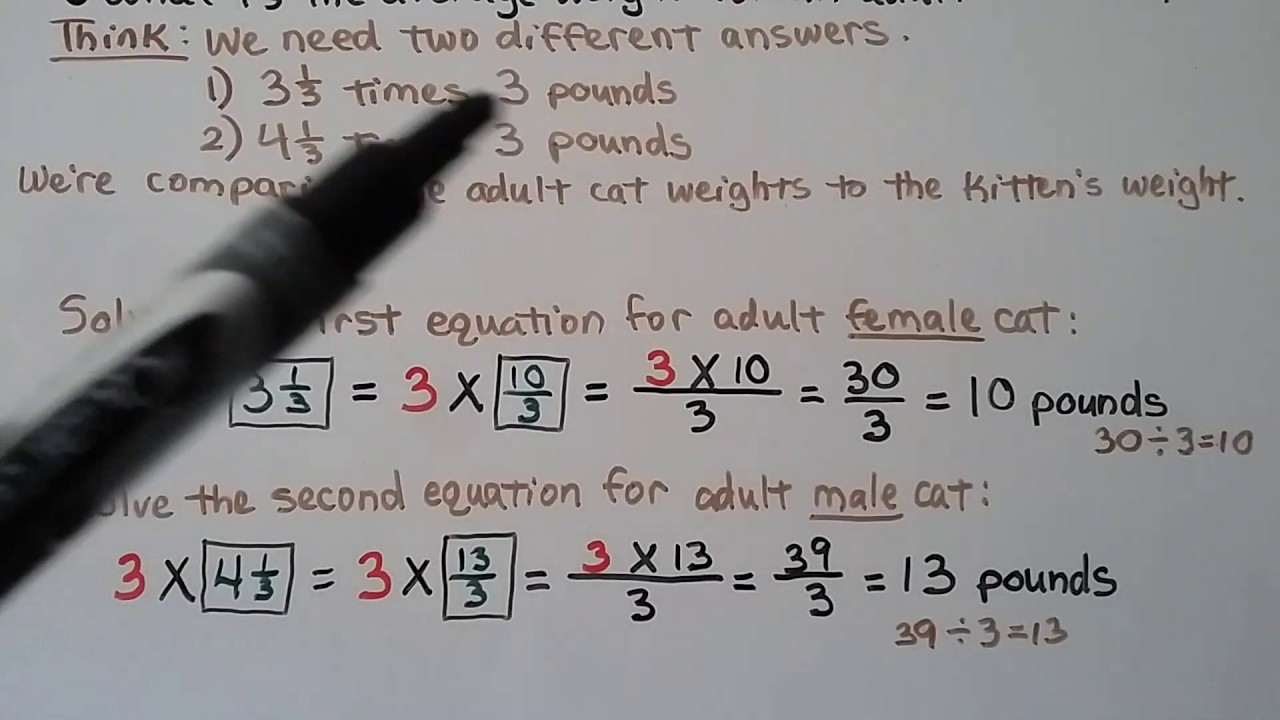 Think: We need two different answers.
1) 3 1/3 times 3 pounds
2) 4 1/3 3 pounds
We're adult cat weights to the Kitten's weight.
equation for adult female cat:
3 1/3 = 3 X 10/3 = 3 X 10 / 3 = 30/3 = 10 pounds
30 ÷ 3 = 10
the second equation for adult male cat:
3 X 4 1/3 = 3 X 13/3 = 3 X 13 / 3 = 39/3 = 13 pounds
39 ÷ 3 = 13